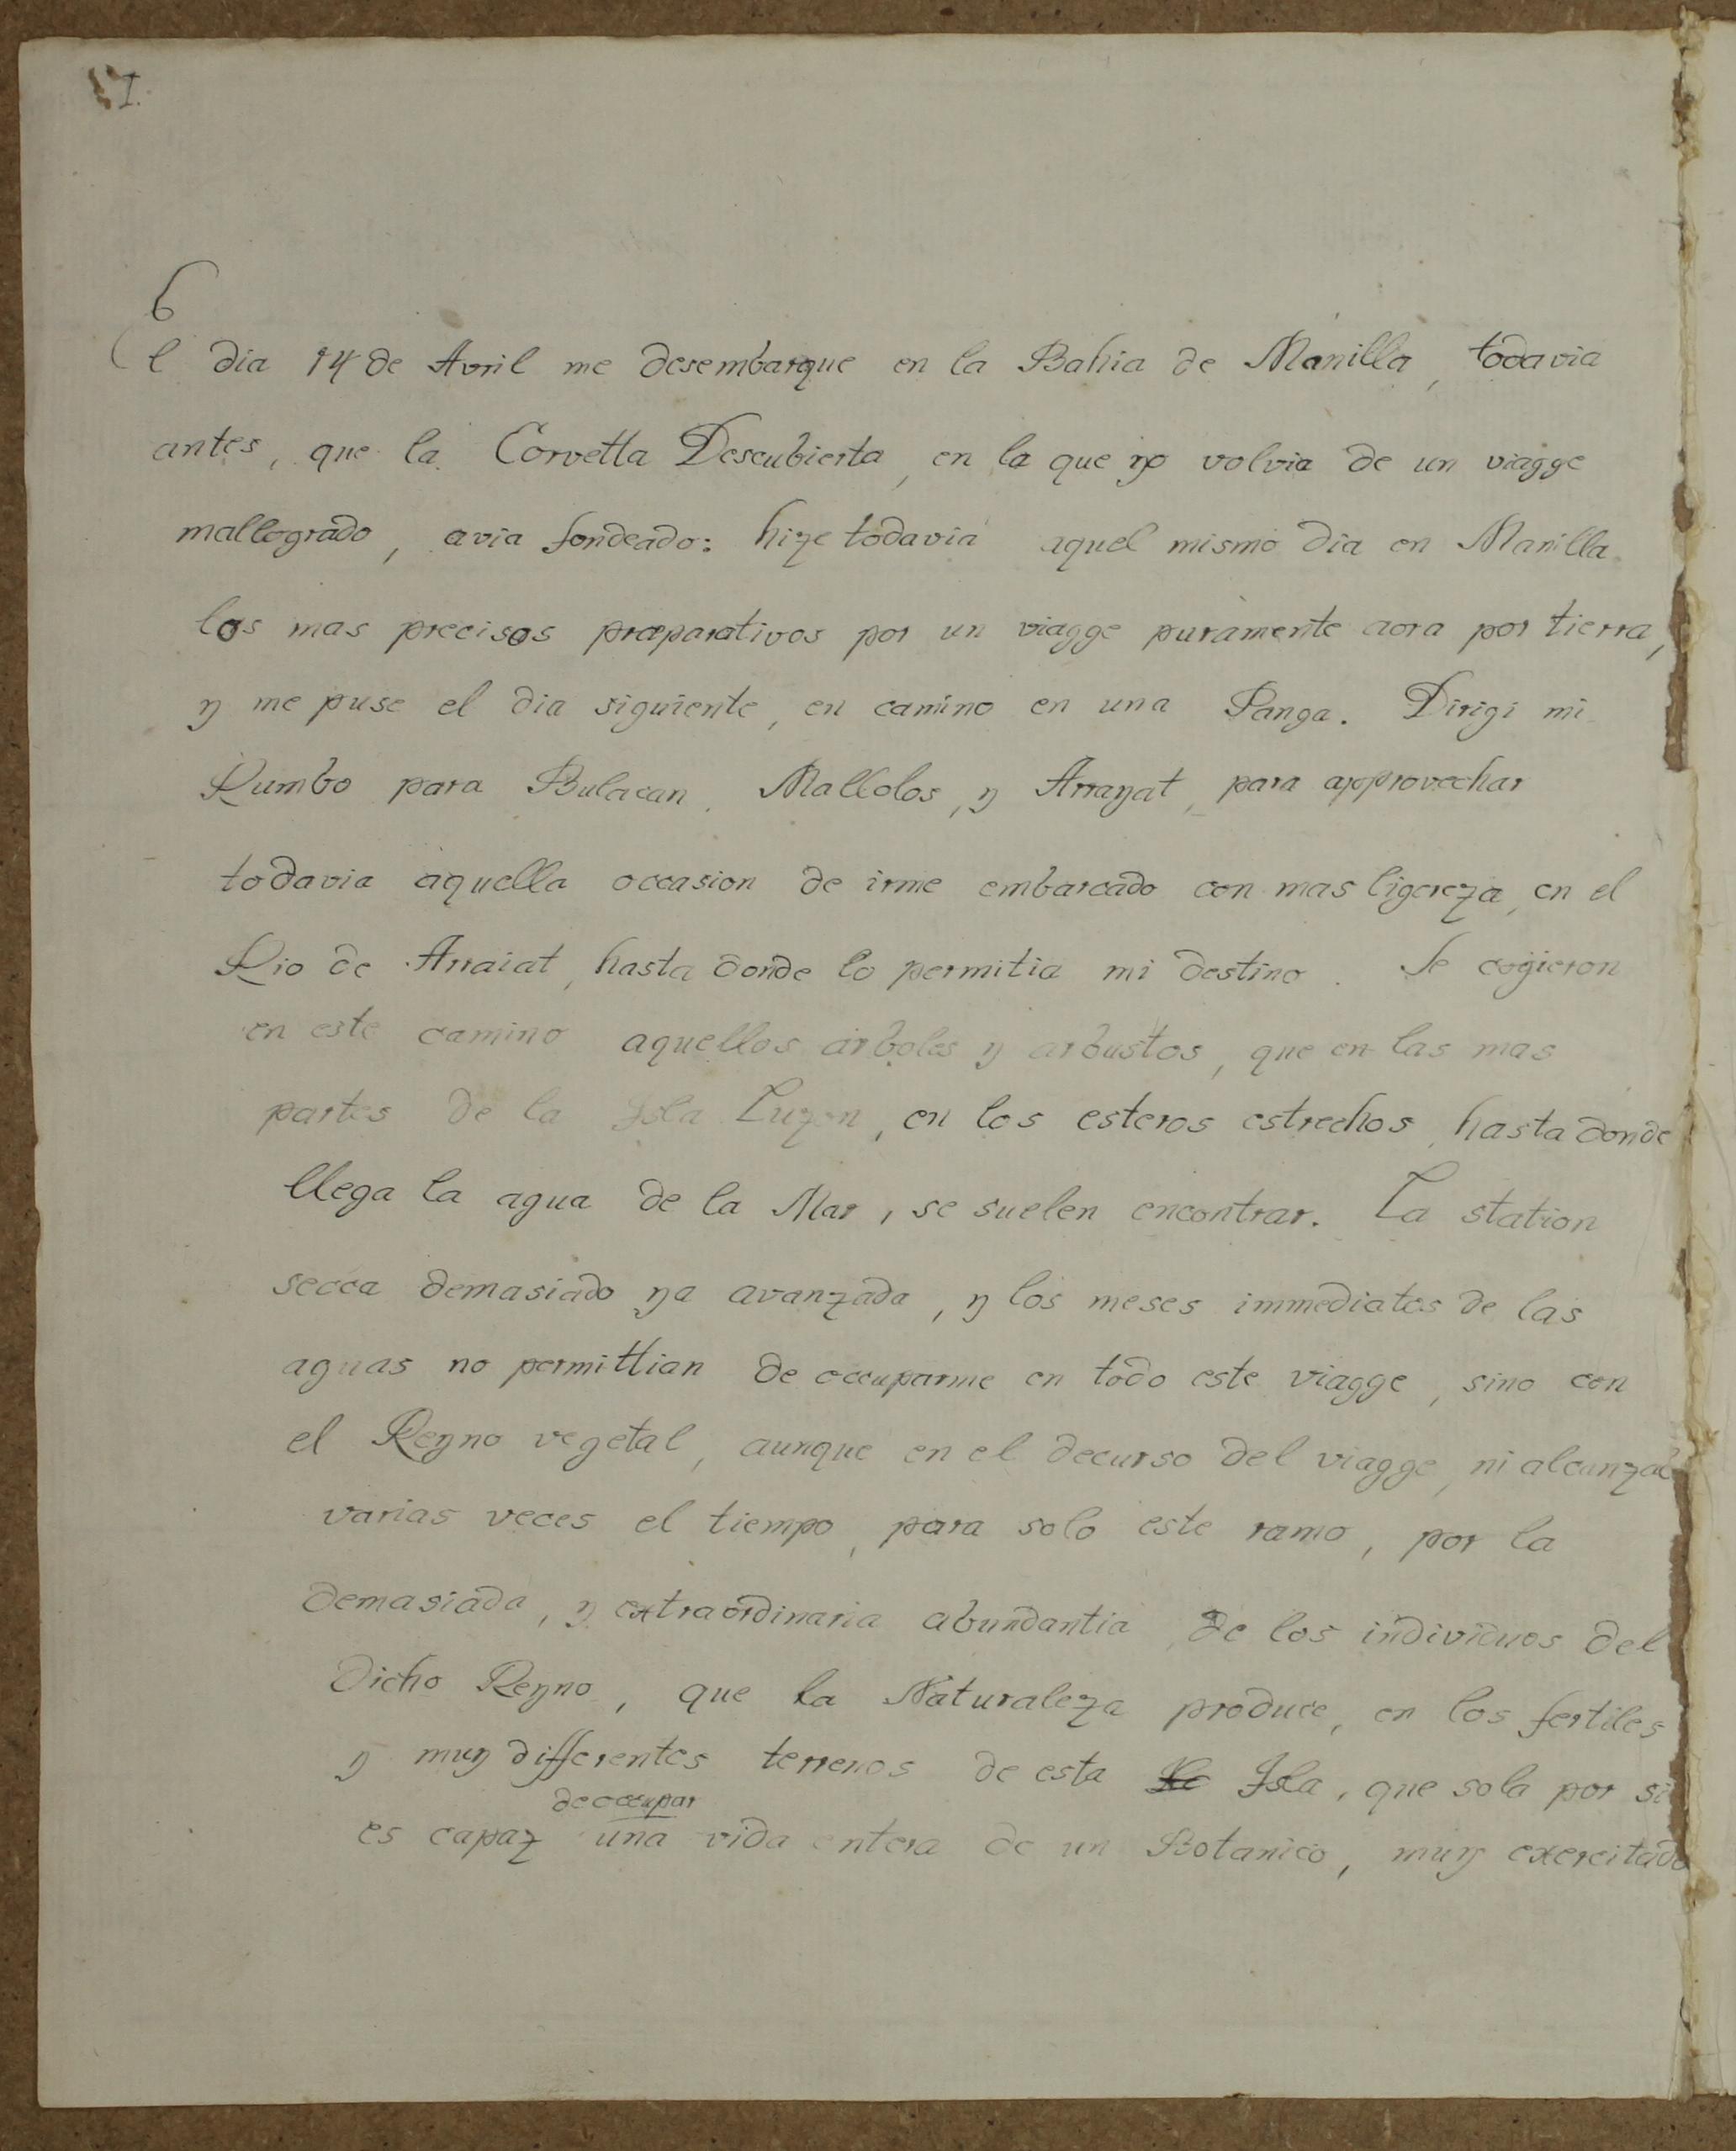 I.
El dia 14 de Avril me desembarque en la Bahia de Manilla, todavia
antes, que la Corvetta Descubierta, en la que yo volvia de un viagge
mallogrado, avia fondeado: hize todavia aquel mismo dia en Manilla
los mas precisos præparativos por un viagge puramente aora por tierra,
y me puse el dia siguiente, en camino en una Panga. Dirigi mi
Rumbo para Bulacan, Mallolos, y Arrayat, para approvechar
todavia aquella occasion de irme embarcado con mas ligereza, en el
Rio de Arraiat, hasta donde lo permitia mi destino. Se cogieron
en este camino aquellos arboles y arbustos, que en las mas
partes de la Isla Luzon, en los esteros estrechos, hasta donde
llega la agua de la Mar, se suelen encontrar. La station
secca demasiado ya avanzada, y los meses immediatos de las
aguas no permittian de occuparme en todo este viagge, sino con
el Reyno vegetal, aunque en el decurso del viagge, ni
varias veces el tiempo, para solo este ramo, por la
demasiada, y extraordinaria abundantia de los individuos del
dicho Reyno, que la Naturaleza produce, en los fertiles
y muy differentes terrenos de esta Isla, que sola por si
de occupar
es capaz una vida entera de un Botanico, muy exercitado